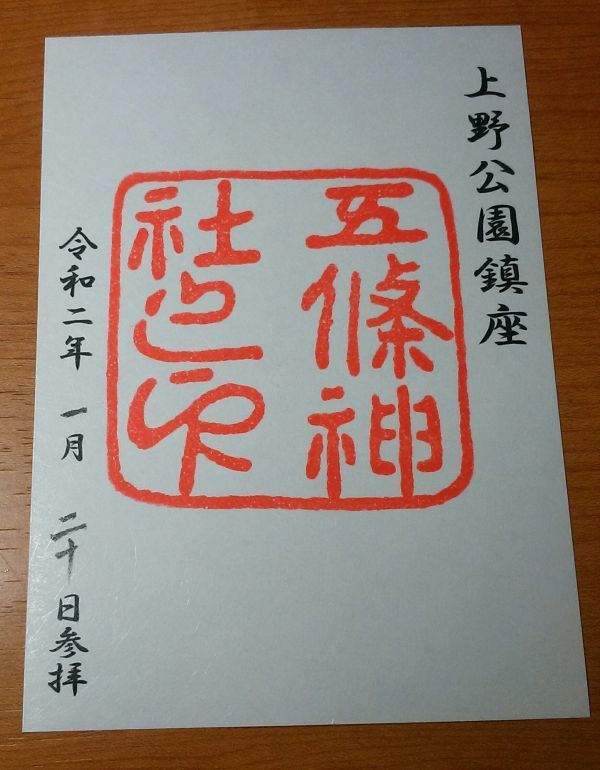 上野公園鎮座
五條神
社之印
令和二年 一月 二十日参拝